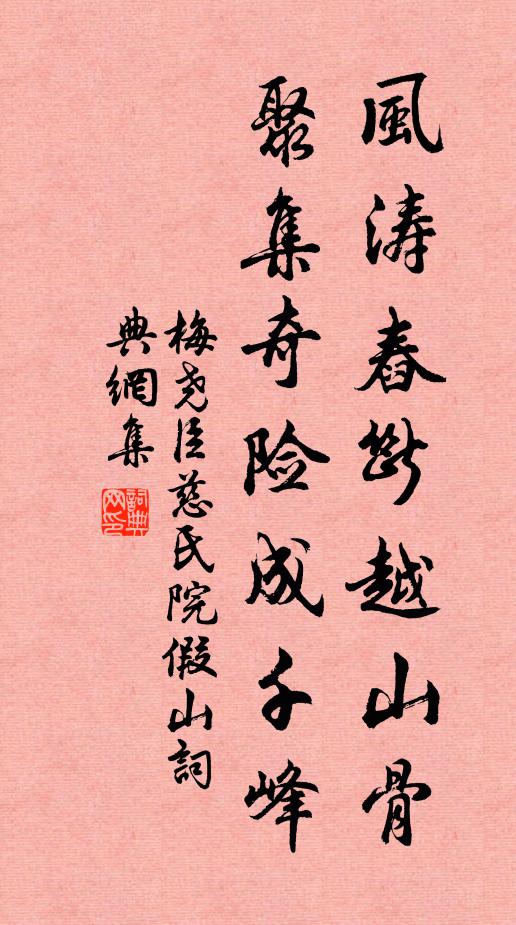 風涛舂斷越山骨
聚集奇险成千峰
梅尧臣慈氏院假山詞
典網集
詞典網印